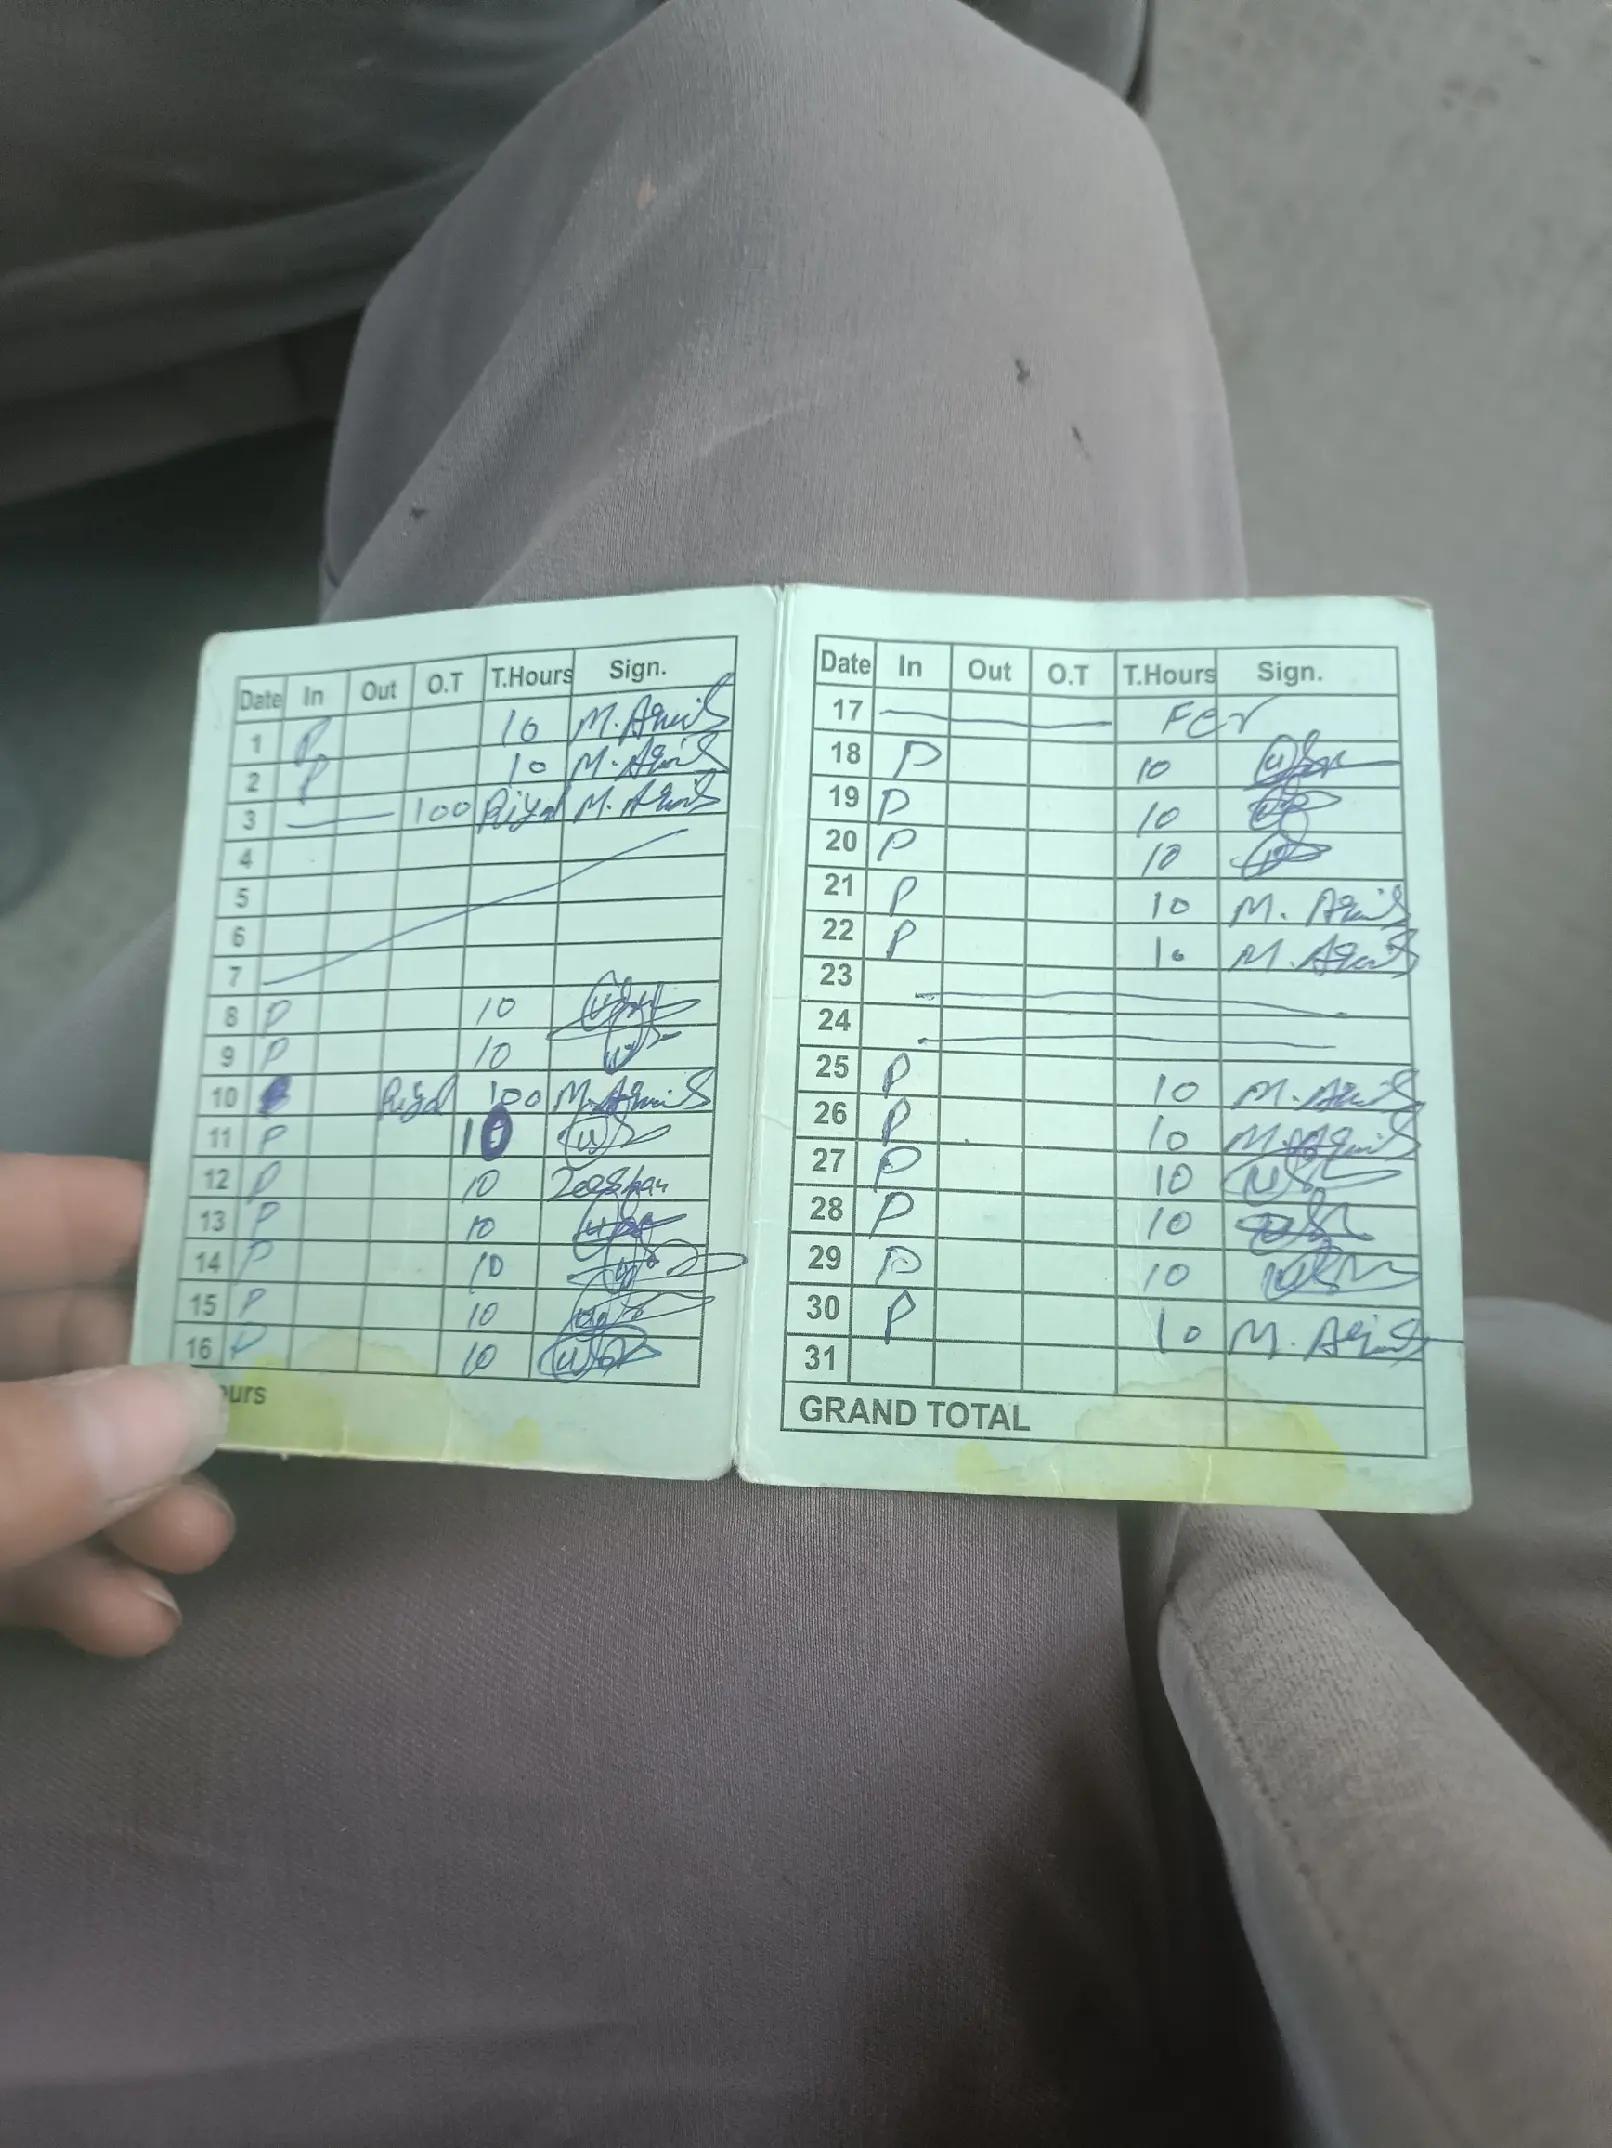 Date In Out O.T T.Hours Sign.
1 P 10 M. Aquib
2 P 10 M. Aquib
3 100 Riyal M. Aquib
4
5
6
7
8 P 10
9 P 10
10 Riyal 100 M. Aquib
11 P 10
12 P 10 Zeeshan
13 P 10
14 P 10
15 P 10
16 P 10
ours
Date In Out O.T T.Hours Sign.
17
18 P 10
19 P 10
20 P 10
21 P 10 M. Aquib
22 P 10 M. Aquib
23
24
25 P 10 M. Aquib
26 P 10 M. Aquib
27 P 10
28 P 10
29 P 10
30 P 10 M. Aquib
31
GRAND TOTAL